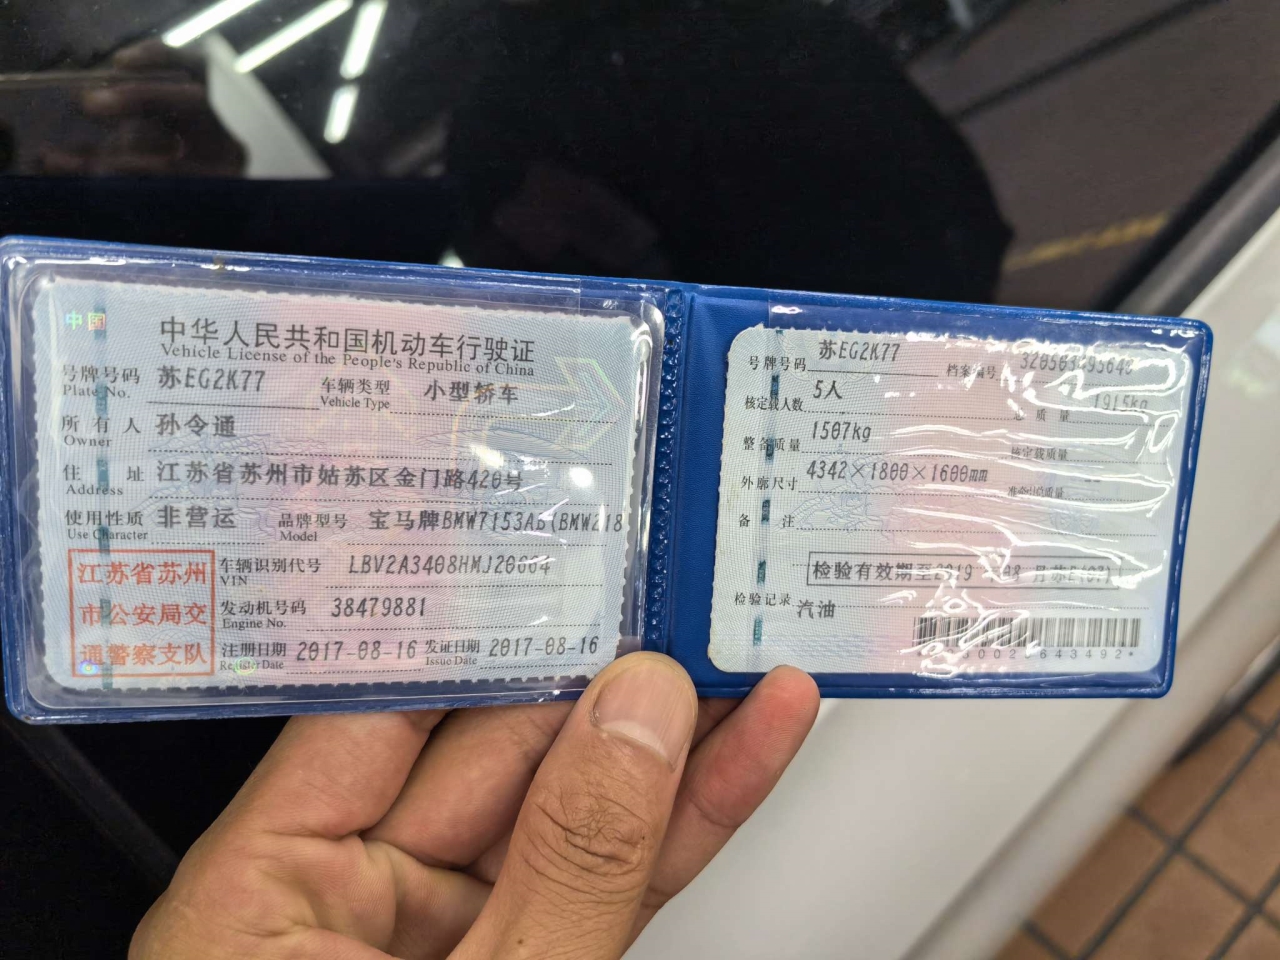 中国
中华人民共和国机动车行驶证
Vehicle License of the People's Republic of China
号牌号码 苏EG2K77 车辆类型 小型轿车
Plate No. Vehicle Type
所有人 孙令通
Owner
住址 江苏省苏州市姑苏区金门路420号
Address
使用性质 非营运 品牌型号 宝马牌BMW7153AB(BMW218
Use Character Model
江苏省苏州
市公安局交
通警察支队
车辆识别代号
VIN
发动机号码 38479881
Engine No.
注册日期 2017-08-16 发证日期 2017-08-16
Register Date Issue Date
号牌号码 苏EG2K77 档案编号
核定载人数 5人 总质量 1915kg
整备质量 1507kg 核定载质量
外廓尺寸 4342×1800×1600mm 准牵引总质量
备注
检验有效期至2019年08月苏E(07)
检验记录 汽油